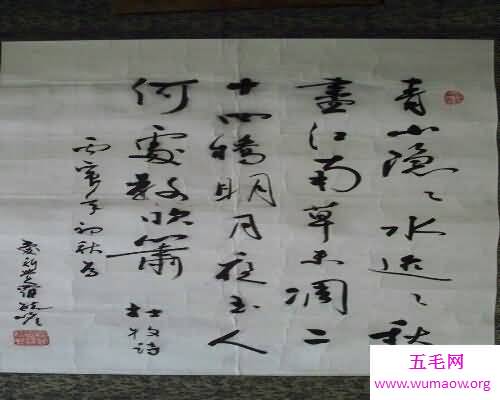 青山隐々水迢々秋
盡江南草未凋二
十四橋明月夜玉人
何處教吹簫 杜牧詩
丙寅年初秋为
五毛网
www.wumaow.org